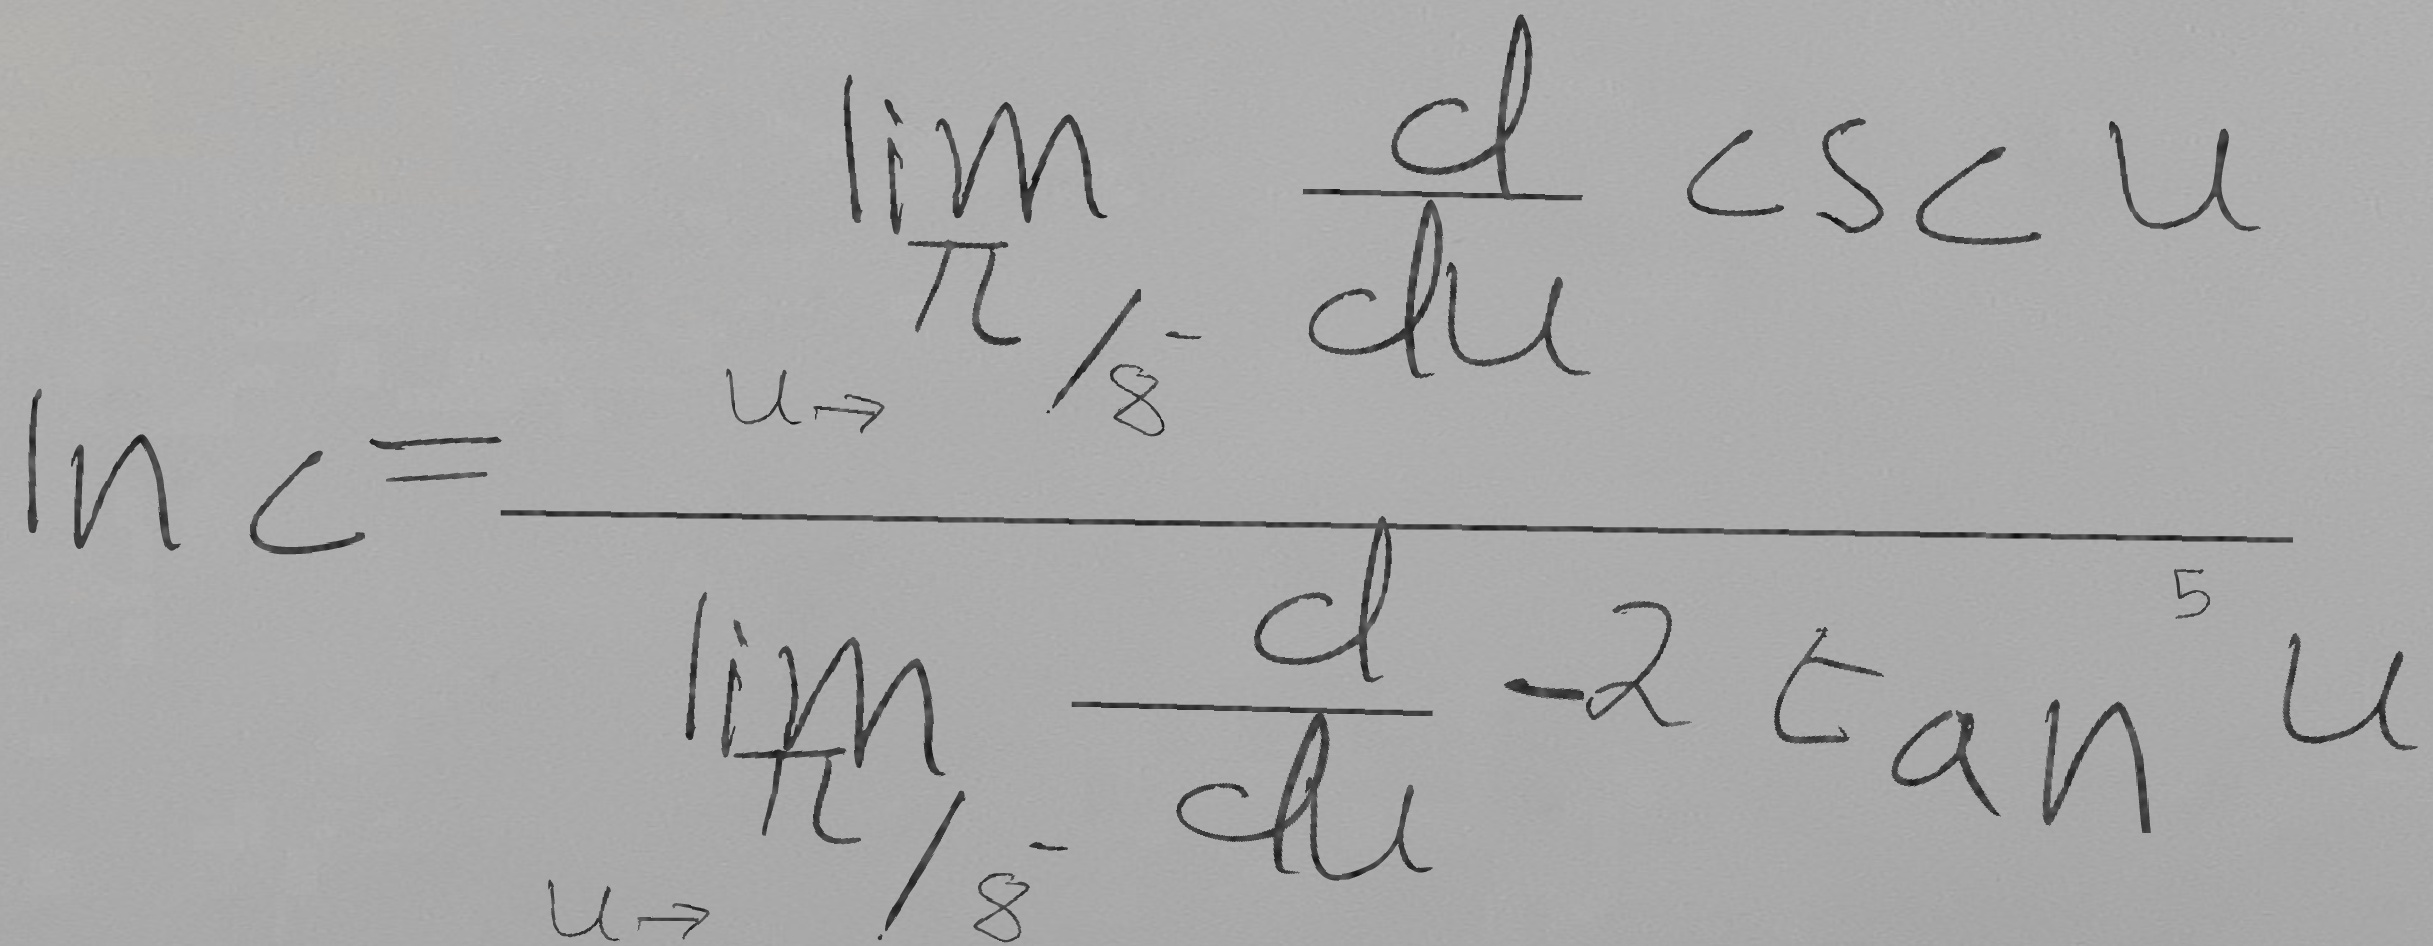 ln c = \frac{\lim_{u \to \pi/8^-} \frac{d}{du} \csc u}{\lim_{u \to \pi/8^-} \frac{d}{du} -2 \tan^5 u}